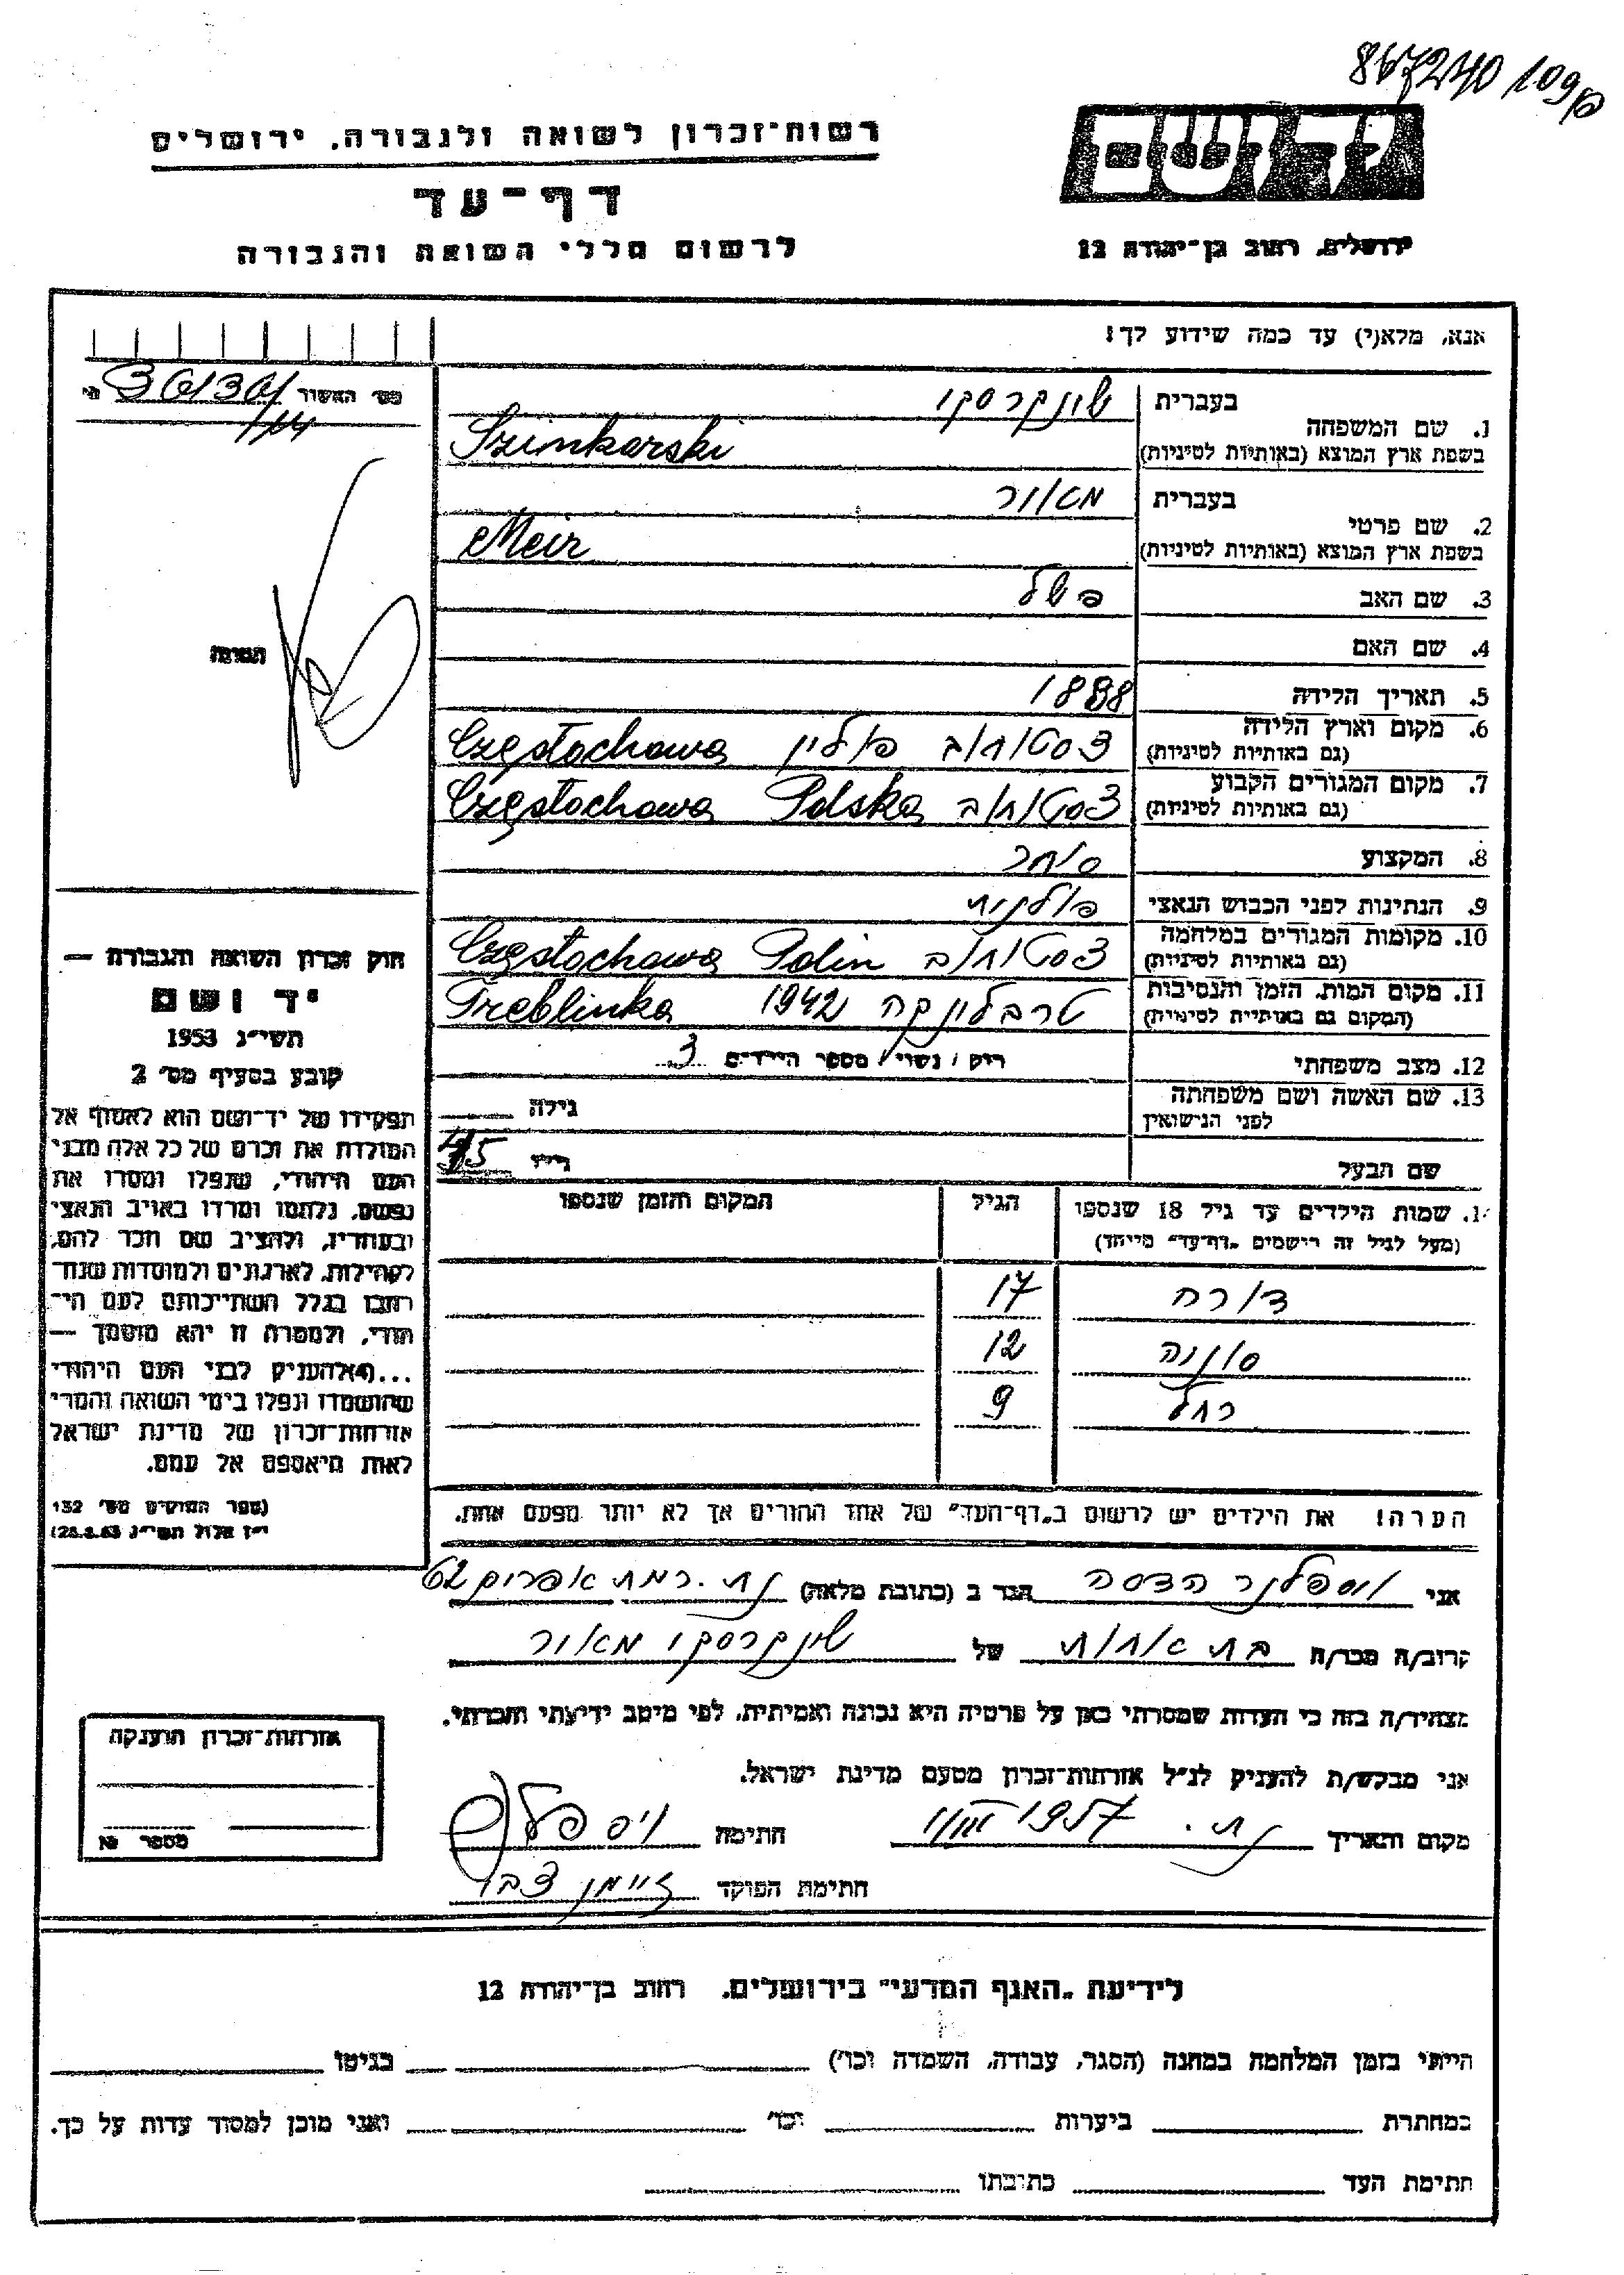 867240 109
רשות־זכרון לשואה ולגבורה. ירושלים
דף־עד
לרשום חללי השואה והגבורה
יד ושם
ירושלים, רחוב בן־יהודה 12
אנא, מלא(י) עד כמה שידוע לך!
מס' האשור
1. שם המשפחה
בעברית שינקרסקי
בשפת ארץ המוצא (באותיות לטיניות) Szinkarski
2. שם פרטי
בעברית מאיר
בשפת ארץ המוצא (באותיות לטיניות) Meir
3. שם האב פישל
4. שם האם
5. תאריך הלידה 1888
6. מקום וארץ הלידה צסטוחוב פולין Częstochowa
(גם באותיות לטיניות)
7. מקום המגורים הקבוע צסטוחוב Polska Częstochowa
(גם באותיות לטיניות)
8. המקצוע סוחר
9. הנתינות לפני הכבוש הנאצי פולנית
10. מקומות המגורים במלחמה צסטוחוב Polin Częstochowa
(גם באותיות לטיניות)
11. מקום המות, הזמן והנסיבות טרבלינקה 1942 Treblinka
(המקום גם באותיות לטיניות)
12. מצב משפחתי רוק / נשוי / מספר הילדים 3
13. שם האשה ושם משפחתה
לפני הנישואין
גילה
שם הבעל
גילו 45
14. שמות הילדים עד גיל 18 שנספו
(מעל לגיל זה רושמים "דף־עד" מיוחד)
הגיל
המקום והזמן שנספו
דורה 17
סונה 12
רחל 9
הערה! את הילדים יש לרשום ב"דף־העד" של אחד ההורים אך לא יותר מפעם אחת.
חתימה
חוק זכרון השואה והגבורה —
יד ושם
תשי״ג 1953
קובע בסעיף מס' 2
תפקידו של יד־ושם הוא לאסוף אל
המולדת את זכרם של כל אלה מבני
העם היהודי, שנפלו ומסרו את
נפשם, נלחמו ומרדו באויב הנאצי
ובעוזריו, ולהציב שם וזכר להם,
לקהילות, לארגונים ולמוסדות שנח־
רבו בגלל השתייכותם לעם הי־
הודי, ולמטרה זו יהא מוסמך —
...(4) להעניק לבני העם היהודי
שהושמדו ונפלו בימי השואה והמרי
אזרחות־זכרון של מדינת ישראל
לאות היאספם אל עמם.
(ספר החוקים מס' 132
י״ז אלול תשי״ג 28.8.53)
אני הדסה הגר ב (כתובת מלאה) נת. רמת אפרים 62
קרוב/ה מכר/ה בת אחות של שינקרסקי מאיר
מצהיר/ה בזה כי העדות שמסרתי כאן על פרטיה היא נכונה ואמיתית, לפי מיטב ידיעתי והכרתי.
אני מבקש/ת להעניק לנ״ל אזרחות־זכרון מטעם מדינת ישראל.
מקום ותאריך נת. 1957 חתימה
חתימת הפוקד
אזרחות־זכרון הוענקה
מספר №
לידיעת "האגף המדעי" בירושלים. רחוב בן־יהודה 12
הייתי בזמן המלחמה במחנה (הסגר, עבודה, השמדה וכו') בגיטו
במחתרת ביערות וכו' ואני מוכן למסור עדות על כך.
חתימת העד כתיבתו